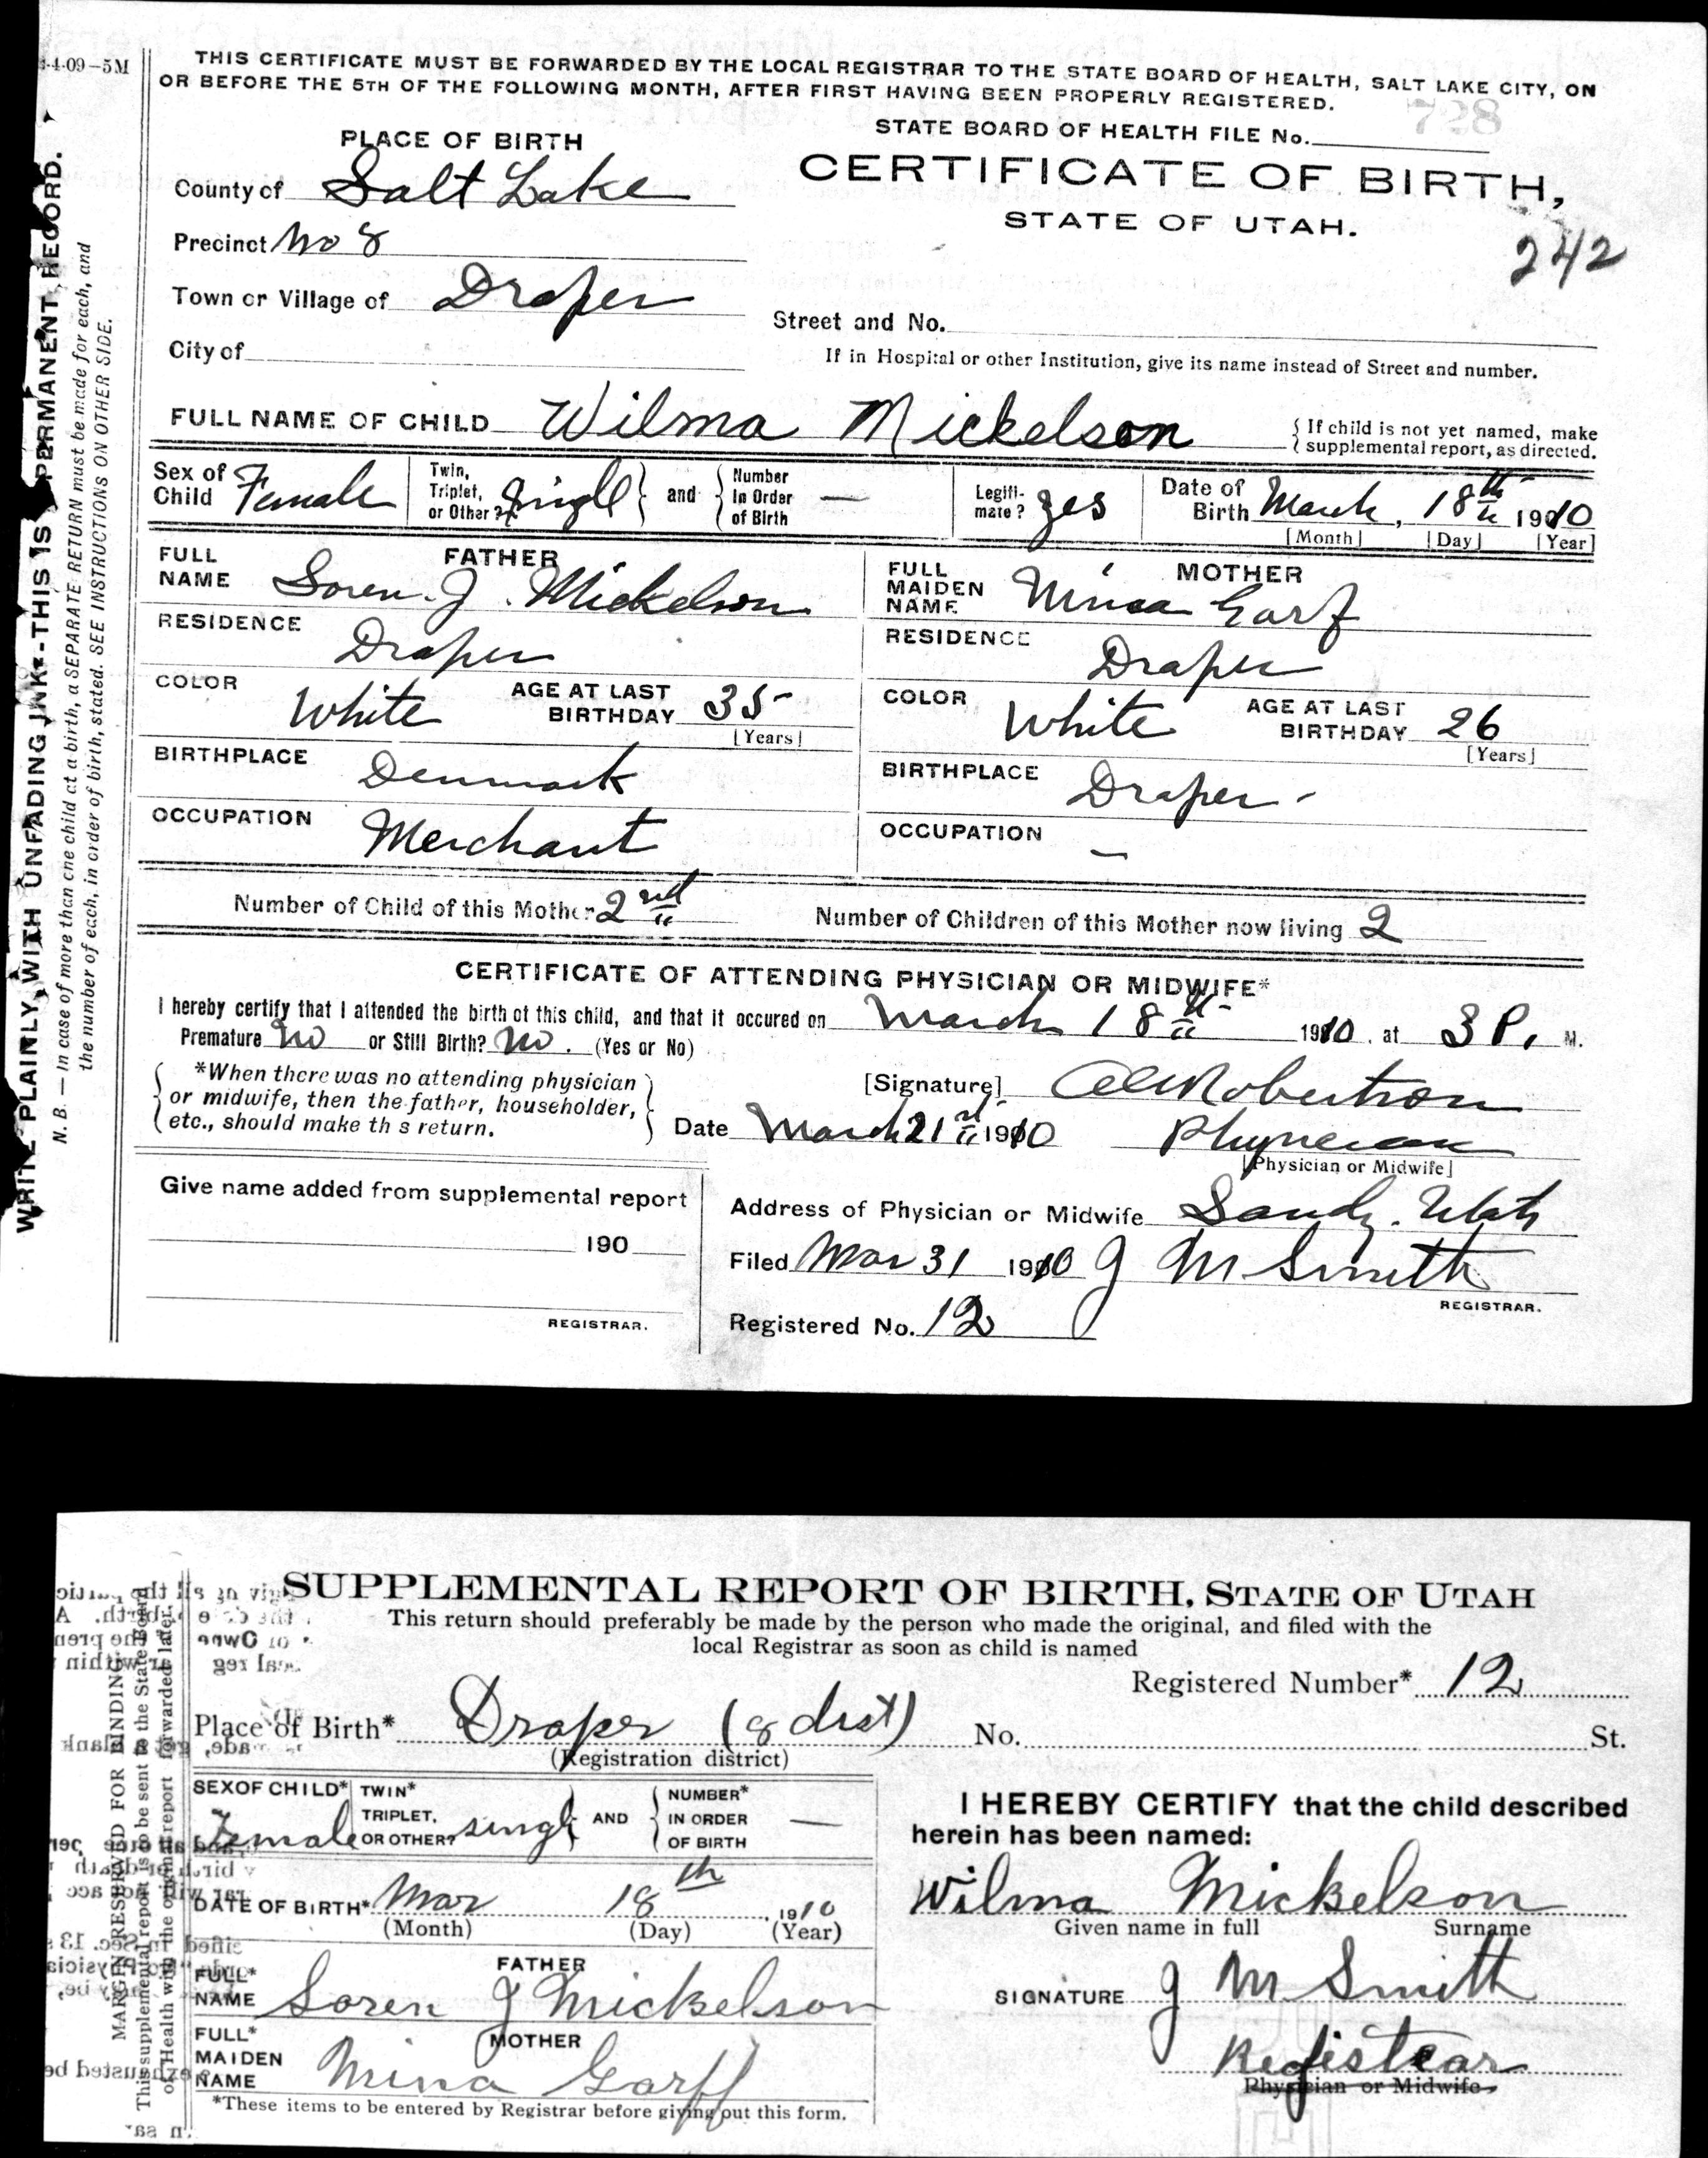 4-09-5M
THIS CERTIFICATE MUST BE FORWARDED BY THE LOCAL REGISTRAR TO THE STATE BOARD OF HEALTH, SALT LAKE CITY, ON
OR BEFORE THE 5TH OF THE FOLLOWING MONTH, AFTER FIRST HAVING BEEN PROPERLY REGISTERED.
STATE BOARD OF HEALTH FILE No. 728
PLACE OF BIRTH
CERTIFICATE OF BIRTH,
STATE OF UTAH.
242
County of Salt Lake
Precinct No 8
Town or Village of Draper
Street and No.
City of
If in Hospital or other Institution, give its name instead of Street and number.
FULL NAME OF CHILD Wilma Mickelson
{ If child is not yet named, make
supplemental report, as directed.
Sex of Child Female
Twin, Triplet, or Other? Single } and { Number In Order of Birth —
Legitimate? yes
Date of Birth March, 18th 1910
[Month] [Day] [Year]
FATHER
FULL NAME Soren J. Mickelson
RESIDENCE Draper
COLOR White AGE AT LAST BIRTHDAY 35
[Years]
BIRTHPLACE Denmark
OCCUPATION Merchant
MOTHER
FULL MAIDEN NAME Minaa Garf
RESIDENCE Draper
COLOR White AGE AT LAST BIRTHDAY 26
[Years]
BIRTHPLACE Draper -
OCCUPATION —
Number of Child of this Mother 2nd
Number of Children of this Mother now living 2
CERTIFICATE OF ATTENDING PHYSICIAN OR MIDWIFE*
I hereby certify that I attended the birth of this child, and that it occured on March 18th 1910. at 3 P. M.
Premature No or Still Birth? No. (Yes or No)
{ *When there was no attending physician
or midwife, then the father, householder,
etc., should make th s return. }
[Signature] Robertson
Date March 21st 1910 Physician
[Physician or Midwife]
Give name added from supplemental report
190
REGISTRAR.
Address of Physician or Midwife Sandy. Utah
Filed Mar 31 1910 J M Smith
REGISTRAR.
Registered No. 12
WRITE PLAINLY, WITH UNFADING INK--THIS IS A PERMANENT RECORD.
N. B. — In case of more than one child at a birth, a SEPARATE RETURN must be made for each, and
the number of each, in order of birth, stated. SEE INSTRUCTIONS ON OTHER SIDE.
SUPPLEMENTAL REPORT OF BIRTH, STATE OF UTAH
This return should preferably be made by the person who made the original, and filed with the
local Registrar as soon as child is named
Registered Number* 12
Place of Birth* Draper (8 dist) No. St.
(Registration district)
SEX OF CHILD* Female
TWIN* TRIPLET, OR OTHER? single } AND { NUMBER* IN ORDER OF BIRTH —
DATE OF BIRTH* Mar 18th, 1910
(Month) (Day) (Year)
FATHER
FULL* NAME Soren J Mickelson
MOTHER
FULL* MAIDEN NAME Mina Garff
*These items to be entered by Registrar before giving out this form.
I HEREBY CERTIFY that the child described
herein has been named:
Wilma Mickelson
Given name in full Surname
SIGNATURE J M Smith
Registrar
Physician or Midwife
MARGIN RESERVED FOR BINDING
This supplemental report is to be sent to the State Board
of Health with the original report forwarded later.